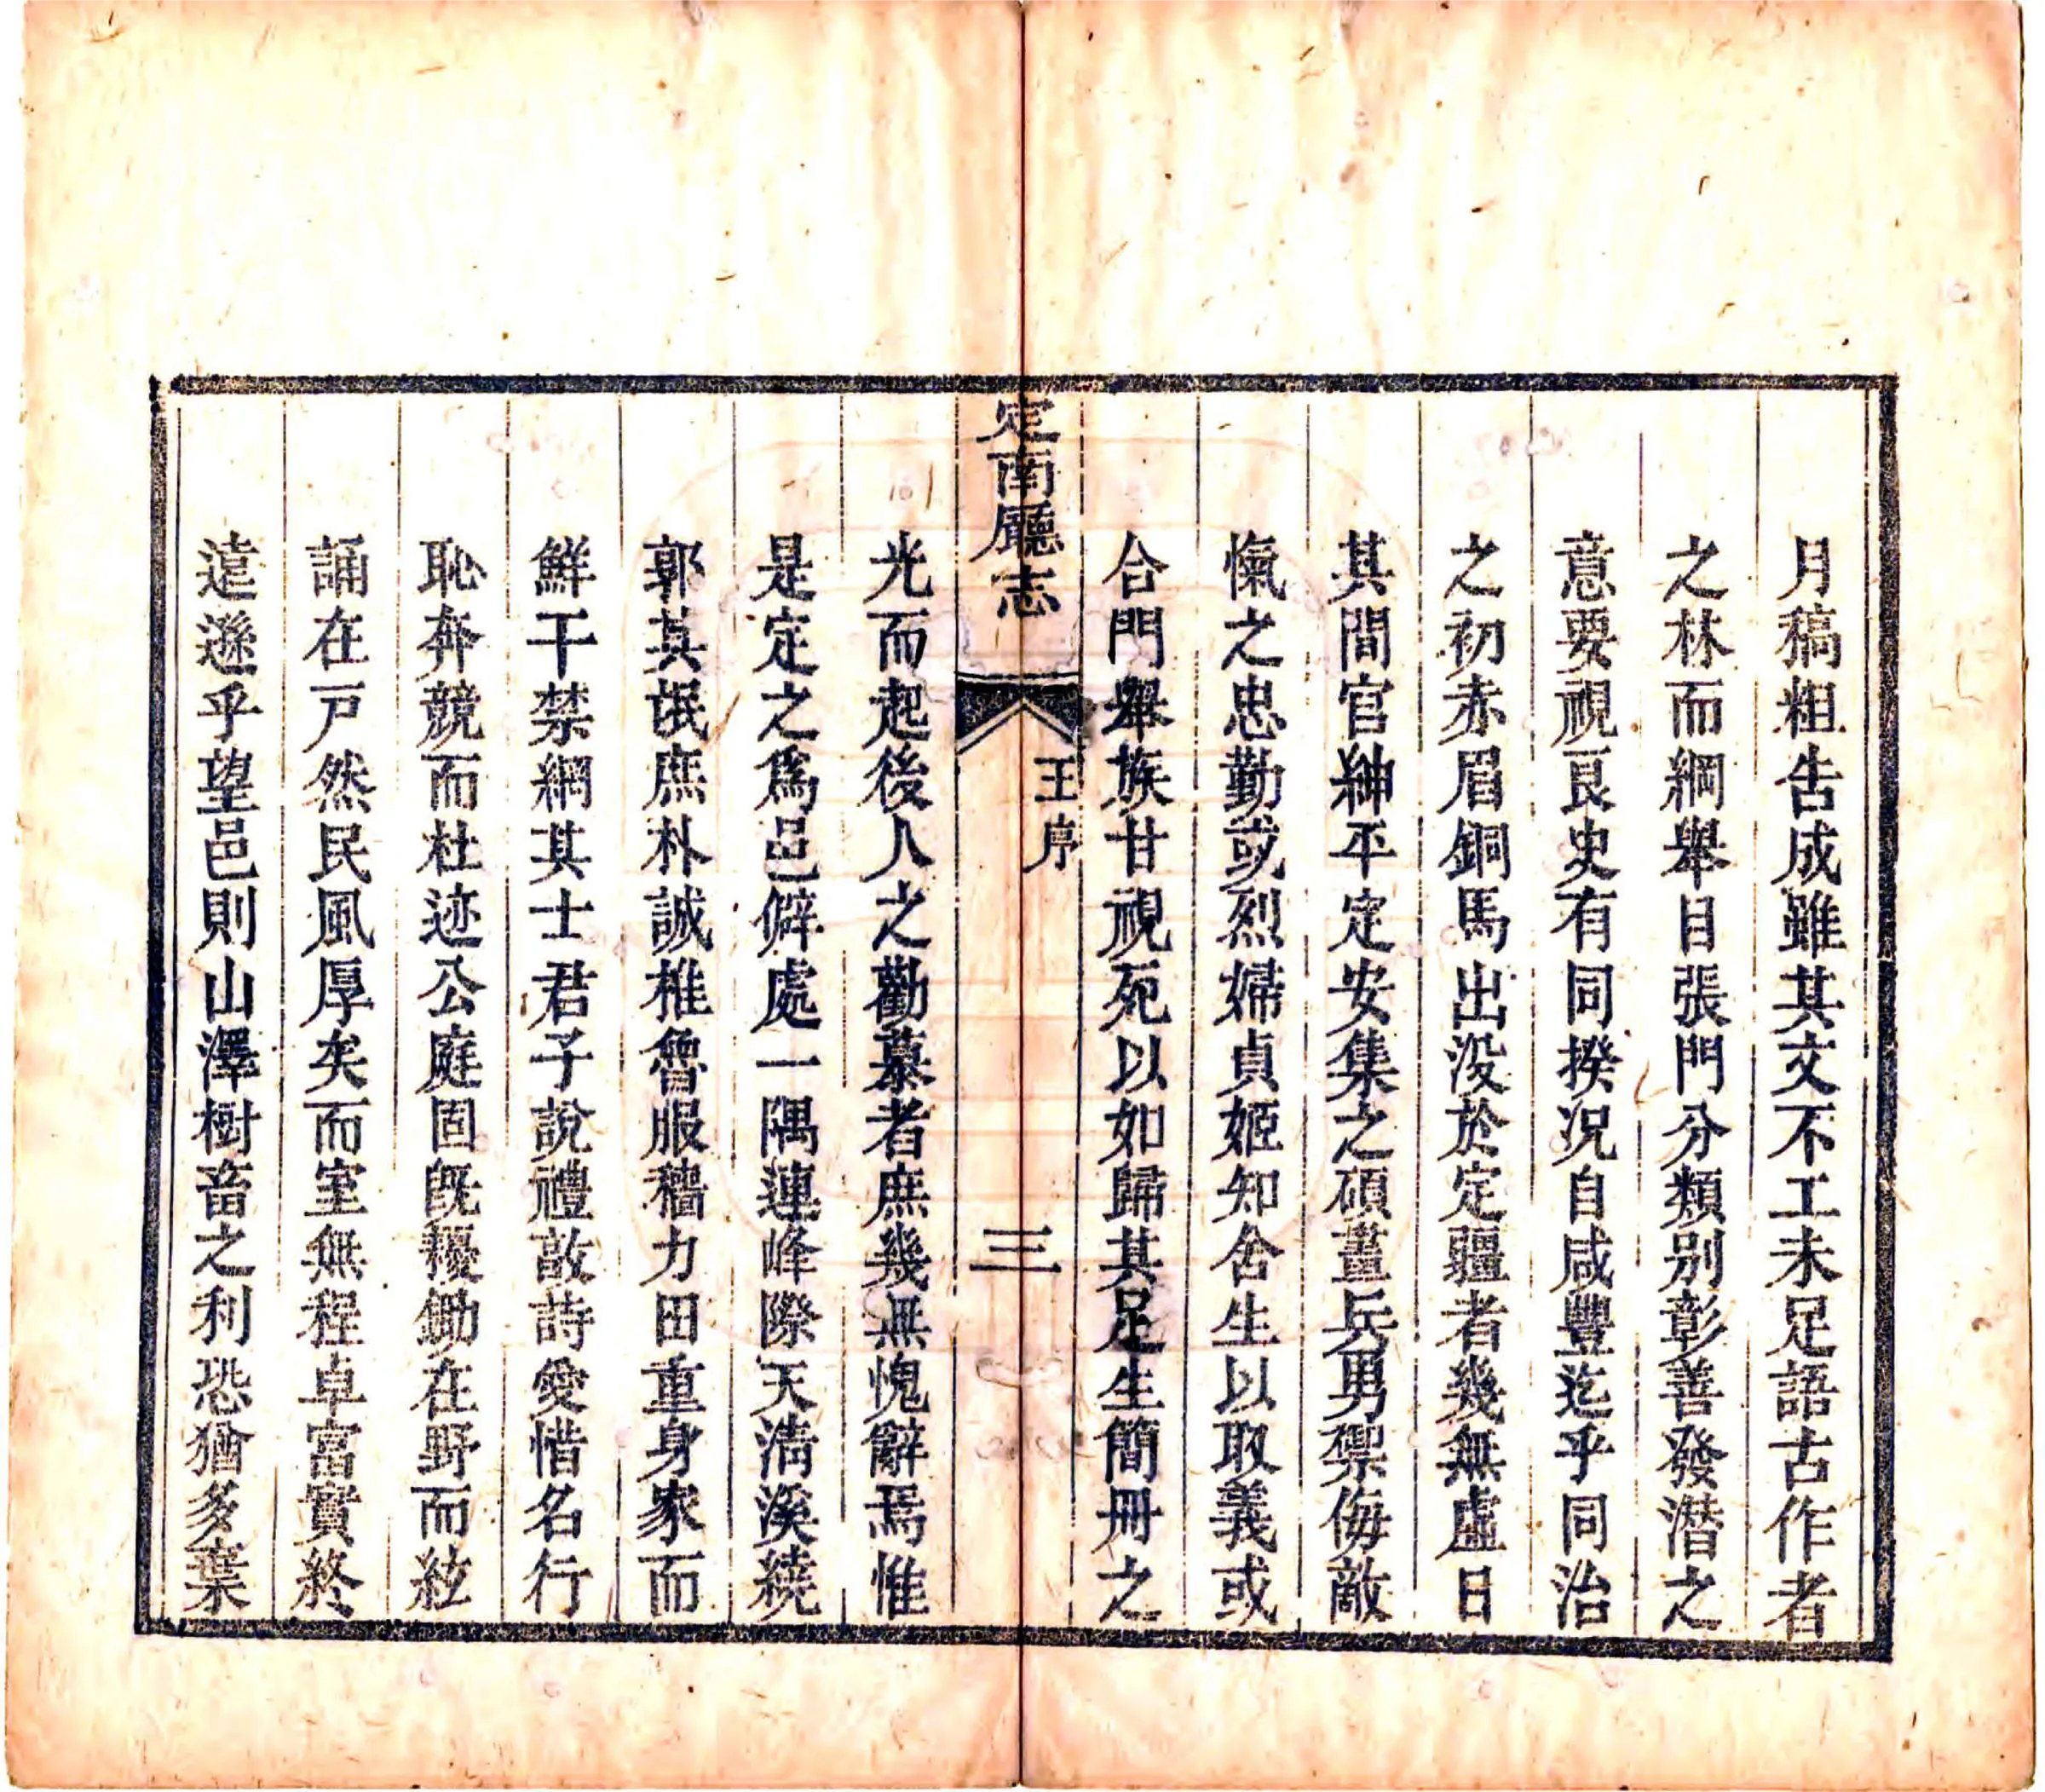 月稿粗告成雖其文不工未足語古作者
之林而綱舉目張門分類別彰善發潛之
意要視良史有同揆况自咸豐迄乎同治
之初赤眉銅馬出没於定疆者幾無虛日
其間官紳平定安集之碩畫兵男禦侮敵
愾之忠勤或烈婦貞姬知舍生以取義或
合門舉族甘視死以如歸其足生簡冊之
定南廳志
王序
三
光而起後人之勸慕者庶幾無愧辭焉惟
是定之爲邑僻處一隅蓮峰際天清溪繞
郭其氓庶朴誠椎魯服穡力田重身家而
鮮干禁網其士君子說禮敦詩愛惜名行
恥奔競而杜迹公庭固旣耰鋤在野而絃
誦在戸然民風厚矣而室無程卓富實終
遠遜乎望邑則山澤樹畜之利恐猶多棄